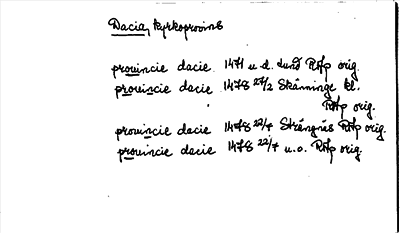 Dacia, kyrkoprovins
provincie dacie 1471 u.d. Lund RAp orig.
provincie dacie 1478 27/2 Skänninge kl.
RAp orig.
provincie dacie 1478 22/7 Strängnäs RAp orig.
provincie dacie 1478 22/7 u.o. RAp orig.